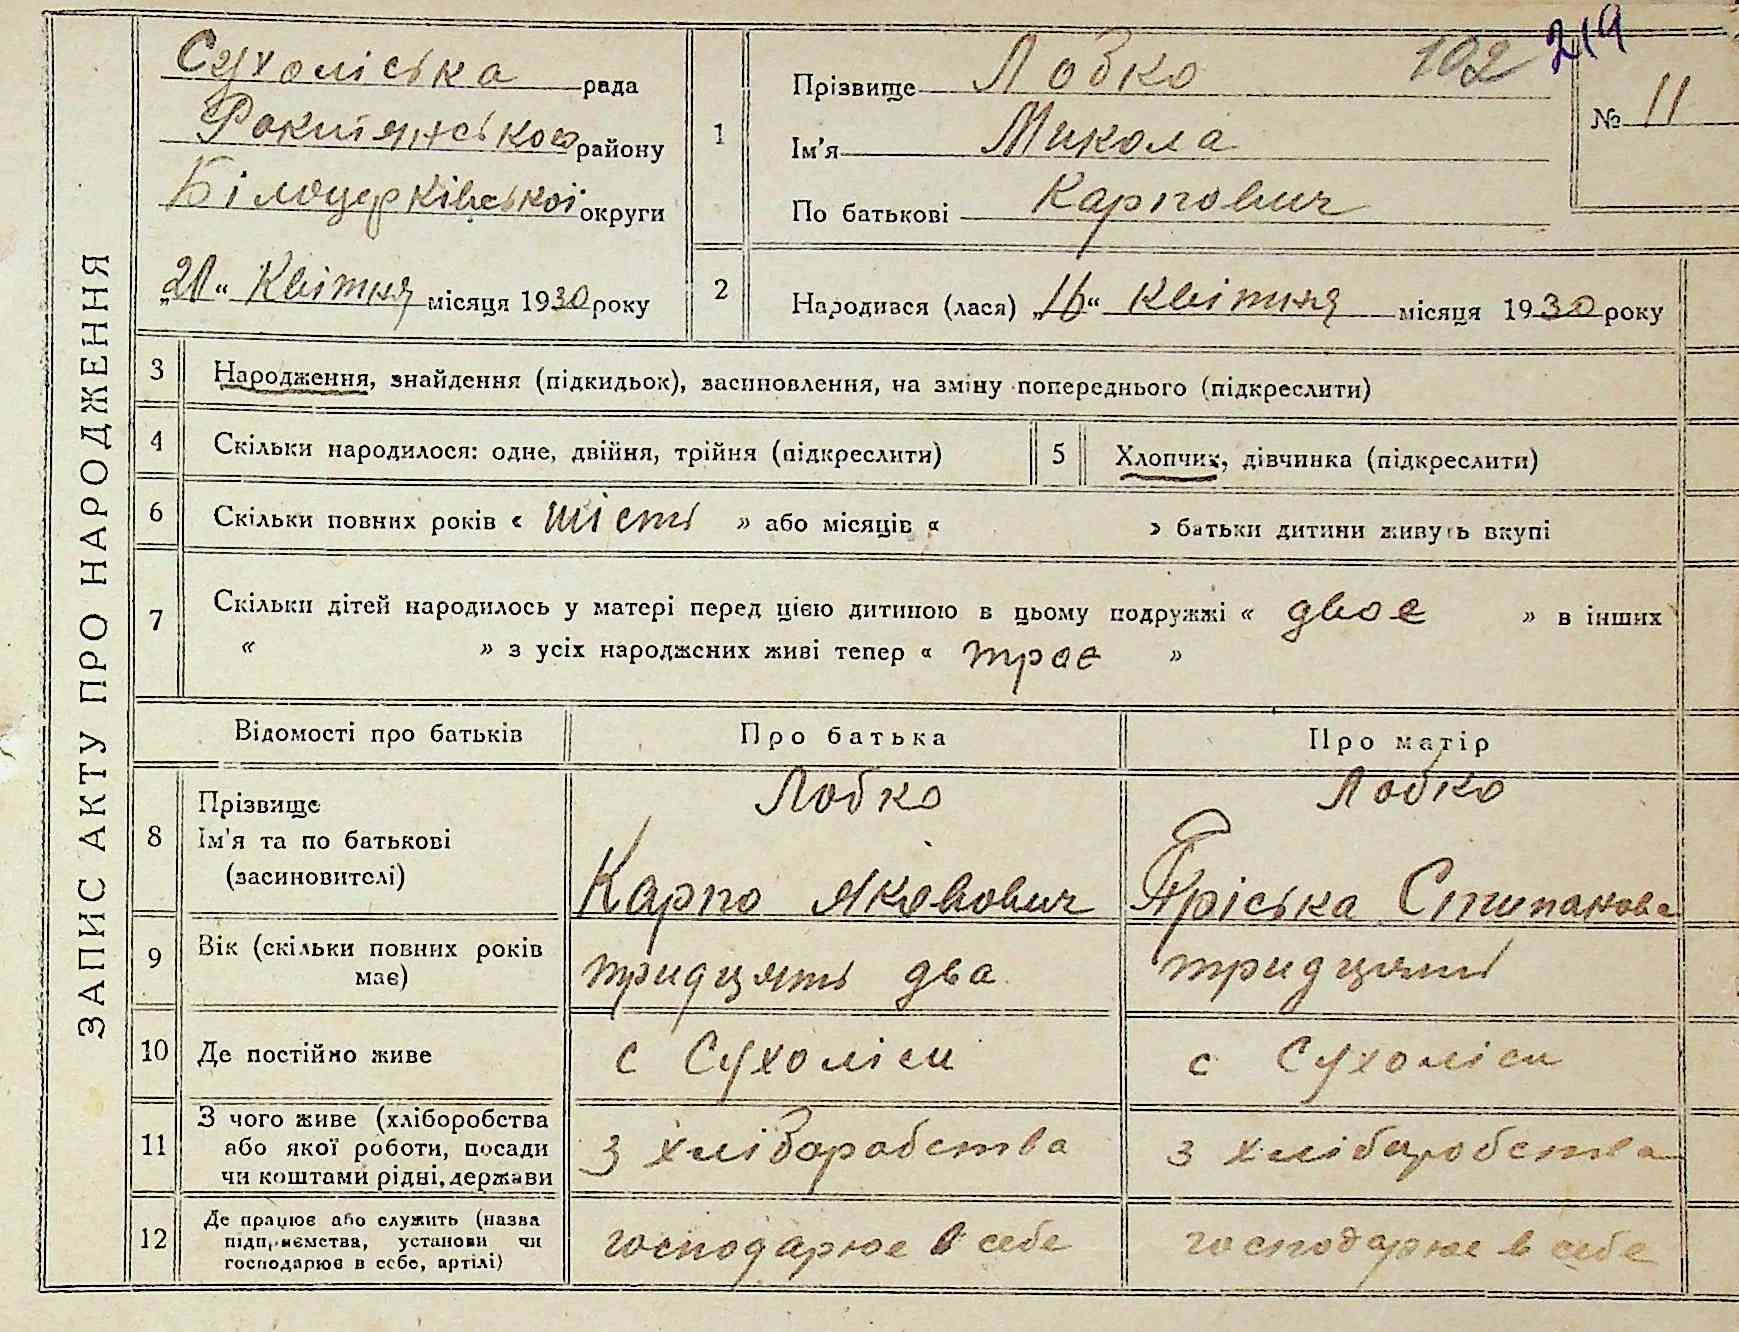 ЗАПИС АКТУ ПРО НАРОДЖЕННЯ
Сухоліська рада
Рокитянського району
Білоцерківської округи
„20“ Квітня місяця 1930 року
102 219
№ 11
1
Прізвище Лобко
Ім'я Микола
По батькові Карпович
2 Народився (лася) „16“ квітня місяця 1930 року
3 Народження, знайдення (підкидьок), засиновлення, на зміну попереднього (підкреслити)
4 Скільки народилося: одне, двійня, трійня (підкреслити)
5 Хлопчик, дівчинка (підкреслити)
6 Скільки повних років « шість » або місяців « » батьки дитини живуть вкупі
7 Скільки дітей народилось у матері перед цією дитиною в цьому подружжі « двоє » в інших
« » з усіх народжених живі тепер « троє »
Відомості про батьків Про батька Про матір
8 Прізвище
Ім'я та по батькові
(засиновителі)
Лобко
Карпо Яковович
Лобко
Пріська Стипанова
9 Вік (скільки повних років
має)
тридцять два
тридцять
10 Де постійно живе
с Сухоліси
с Сухоліси
11 З чого живе (хліборобства
або якої роботи, посади
чи коштами рідні, держави
з хліборобства
з хліборобства
12 Де працює або служить (назва
підприємства, установи чи
господарює в себе, артілі)
господарює в себе
господарює в себе